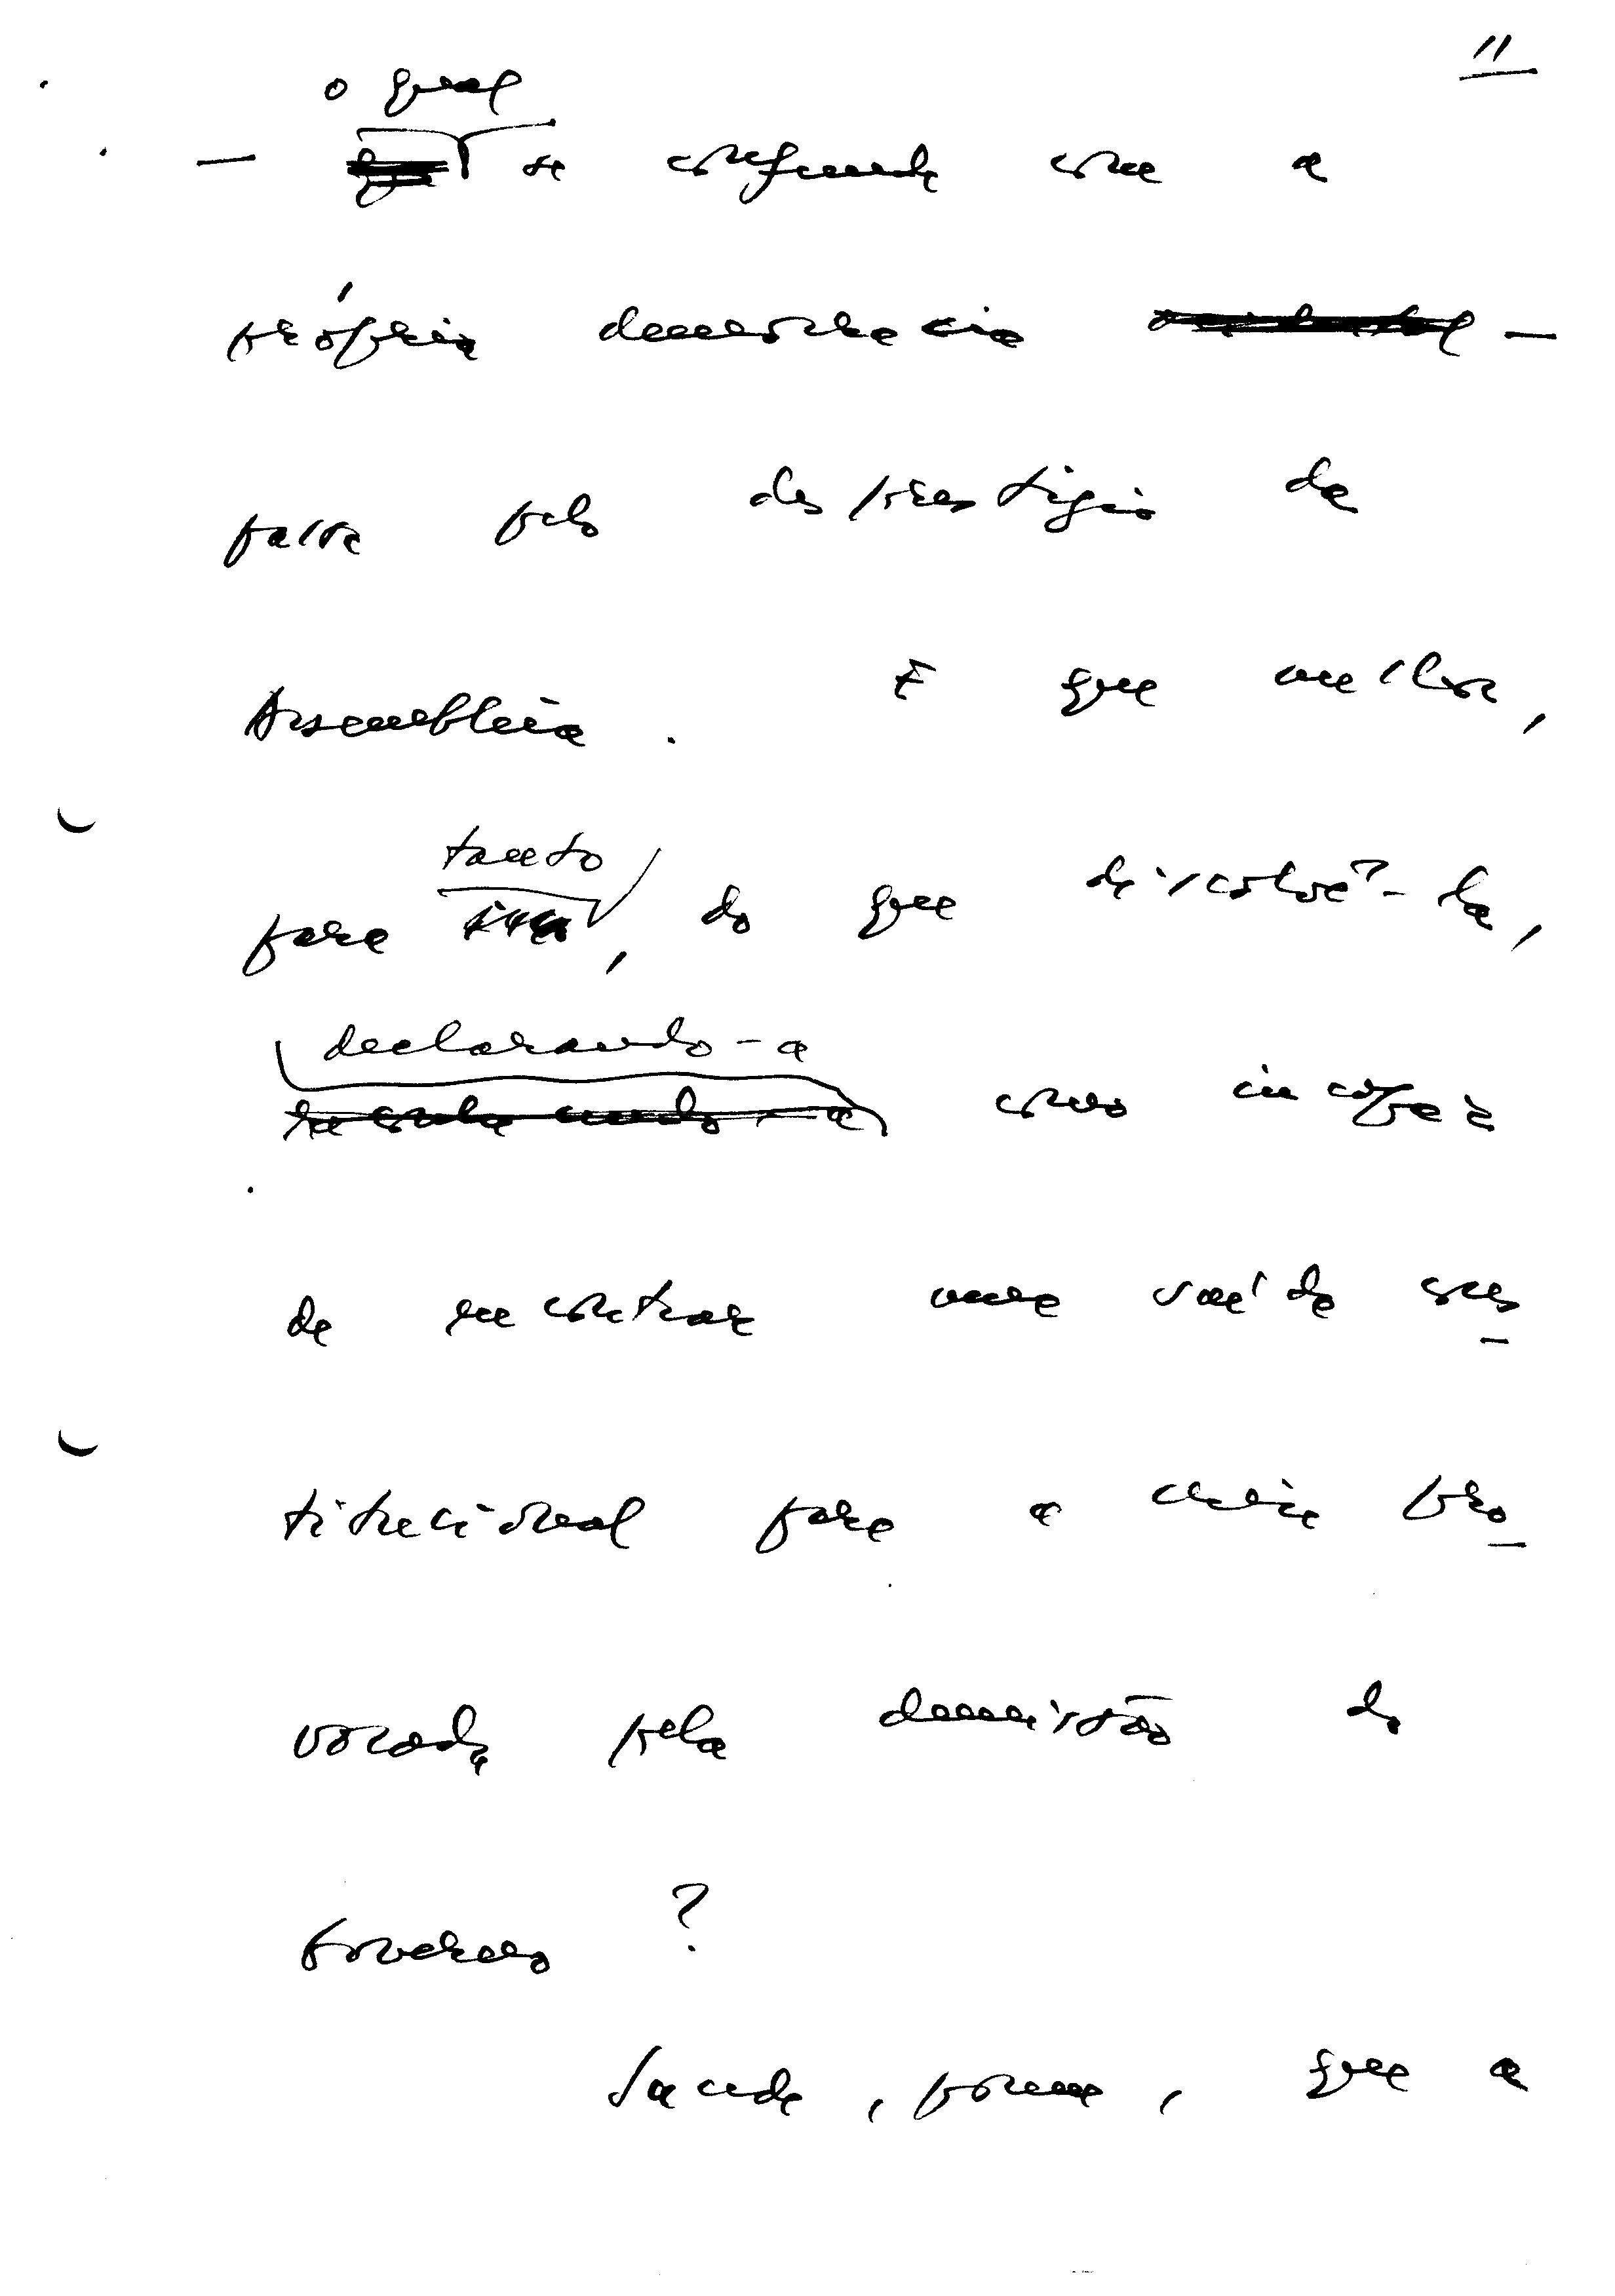 11
o qual
— se confunde com a
própria democracia —
passa pelo desprestígio da
Assembleia. E que melhor,
tanto
para isso, do que dissolvê-la,
declarando-a
como incapaz
de encontrar uma saída cons
titucional para a crise pro
vocada pela demissão do
Governo?
Sucede, porém, que a